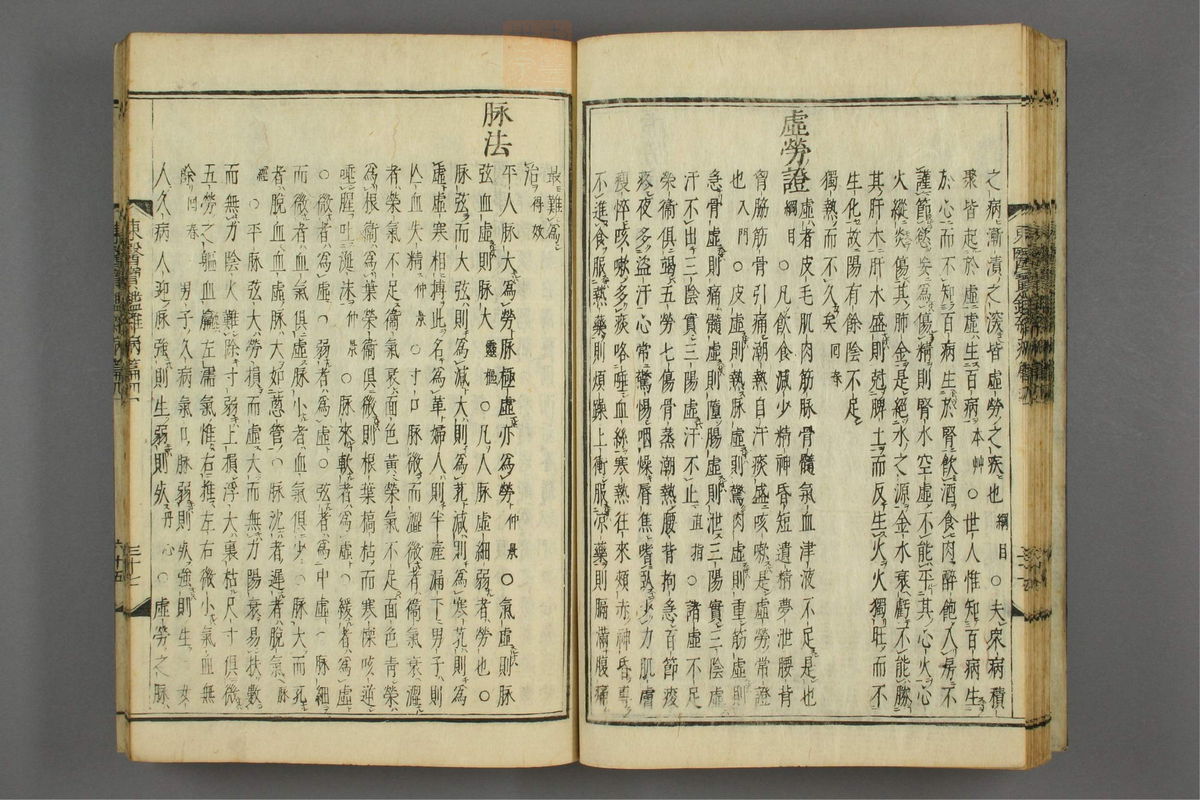 之病漸漬之深皆虛勞之疾也綱目○夫衆病積
聚皆起於虛虛生百病本艸○世人惟知百病生
於心而不知百病生於腎飲酒食肉醉飽入房不
謹節慾妄爲傷精則腎水空虛不能平其心火心
火縱炎傷其肺金是絕水之源金水衰虧不能勝
其肝木肝木盛則尅脾土而反生火火獨旺而不
生化故陽有餘陰不足
獨熱而不久矣回春
虛勞證
虛者皮毛肌肉筋脉骨髓氣血津液不足是也
綱目○凡飲食減少精神昏短遺精夢泄腰背
胷脇筋骨引痛潮熱自汗痰盛咳嗽是虛勞常證
也入門○皮虛則熱脉虛則驚肉虛則重筋虛則
急骨虛則痛髓虛則墮腸虛則泄三陽實三陰虛
汗不出三陰實三陽虛汗不止直指○諸虛不足
榮衞俱竭五勞七傷骨蒸潮熱腰背拘急百節痠
疼夜多盗汗心常驚惕咽燥脣焦嗜臥少力肌膚
瘦悴咳嗽多痰咯唾血絲寒熱往來頰赤神昏
不進食服熱藥則煩躁上衝服凉藥則膈滿腹痛
最難爲
治得效
脉法
平人脉大爲勞脉極虛亦爲勞仲景○氣虛則脉
弦血虛則脉大靈樞○凡人脉虛細弱者勞也○
脉弦而大弦則爲減大則爲芤減則爲寒芤則爲
虛虛寒相搏此名爲革婦人則半産漏下男子則
亾血失精仲景○寸口脉微而澀微者衞氣衰澀
者榮氣不足衞氣衰面色黃榮氣不足面色青榮
爲根衞爲葉榮衞俱微則根葉槁枯而寒慄咳逆
唾腥吐涎沫仲景○脉來軟者爲虛緩者爲虛
○微者爲虛○弱者爲虛○弦者爲中虛○脉細
而微者血氣俱虛脉小者血氣俱少○脉大而芤
者脫血血虛脉大如葱管○脉沈者遲者脫氣脉
經○平脉弦大勞損而虛大而無力陽衰易扶數
而無力陰火難除寸弱上損浮大裏枯尺寸俱微
五勞之軀血羸左濡氣怯右推左右微小氣血無
餘回春○男子久病氣口脉弱則死強則生女
人久病人迎脉強則生弱則死丹心○虛勞之脉